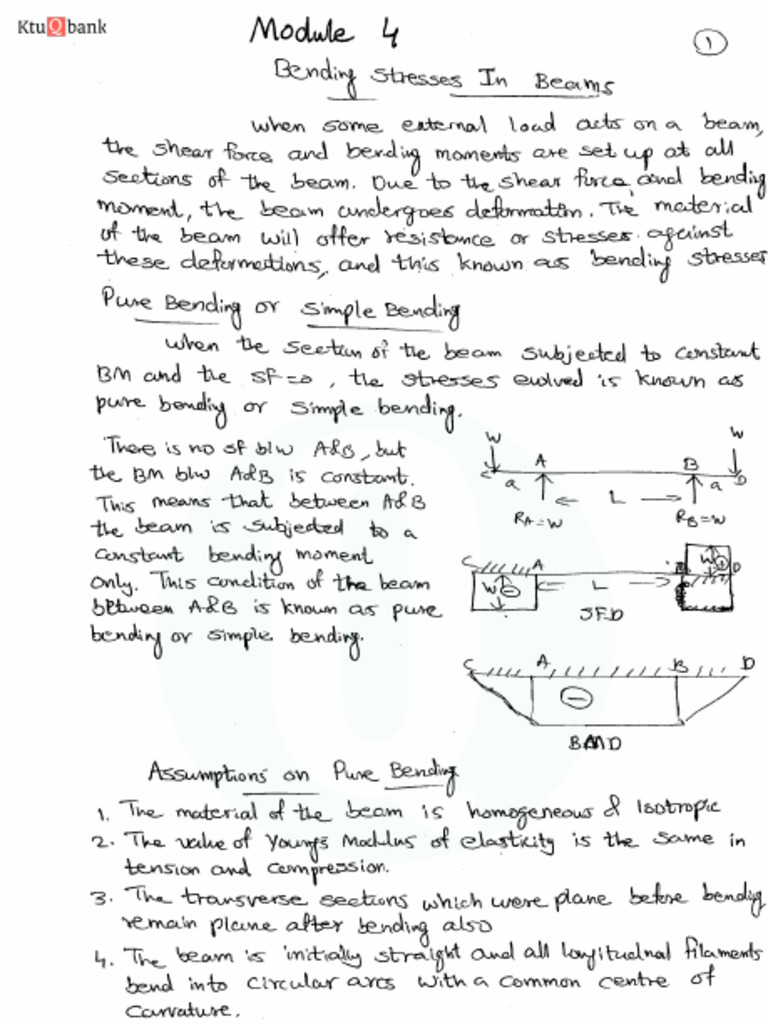 KtuQbank
Module 4
1
Bending Stresses In Beams
when some external load acts on a beam,
the shear force and bending moments are set up at all
sections of the beam. Due to the shear force and bending
moment, the beam undergoes deformation. The material
of the beam will offer resistance or stresses against
these deformations, and this known as bending stresses
Pure Bending or Simple Bending
when the section of the beam subjected to constant
BM and the SF=0, the stresses evolved is known as
pure bending or simple bending.
There is no SF b/w A&B, but
the BM b/w A&B is constant.
This means that between A&B
the beam is subjected to a
constant bending moment
only. This condition of the beam
between A&B is known as pure
bending or simple bending.
W W
C A B D
a L a
RA=W RB=W
C A B D
W - L W +
SFD
C A B D
-
BMD
Assumptions on Pure Bending
1. The material of the beam is homogeneous & Isotropic
2. The value of Young's Modulus of elasticity is the same in
tension and compression.
3. The transverse sections which were plane before bending
remain plane after bending also
4. The beam is initially straight and all longitudnal filaments
bend into circular arcs with a common centre of
Curvature.